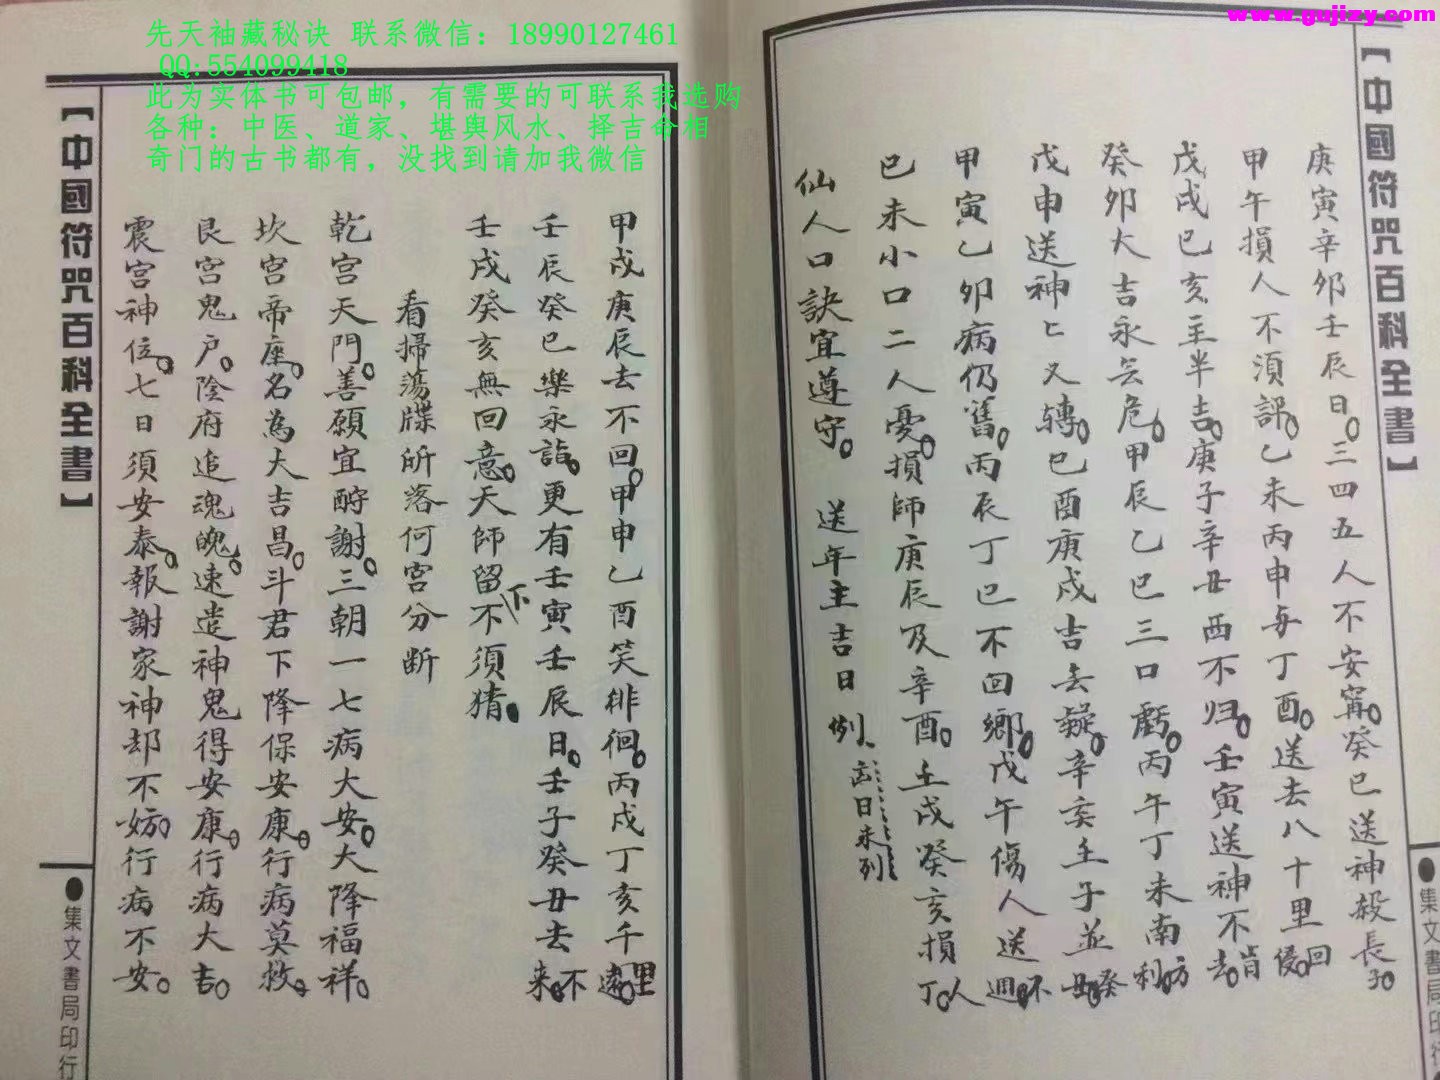 先天袖藏秘诀 联系微信：18990127461
QQ:554099418
此为实体书可包邮，有需要的可联系我选购
各种：中医、道家、堪舆风水、择吉命相
奇门的古书都有，没找到请加我微信
www.gujizy.com
【中國符咒百科全書】
庚寅辛卯壬辰日。三四五人不安寗。癸巳送神殺長子。
甲午損人不須評。乙未丙申与丁酉。送去八十里回侵。
戊戌巳亥主半吉。庚子辛丑西不归。壬寅送神不肯去。
癸卯大吉永無危。甲辰乙巳三口虧。丙午丁未南方利。
戊申送神匕又轉。巳酉庚戌吉無疑。辛亥壬子並癸丑。
甲寅乙卯病仍舊。丙辰丁巳不回鄉。戊午傷人送不週。
巳未小口二人憂。損師庚辰及辛酉。壬戌癸亥損人丁。
仙人口訣宜遵守。 送年主吉日例、
集文書局印行
甲戌庚辰去不回。甲申乙酉笑徘徊。丙戌丁亥千里遠。
壬辰癸巳樂永詣。更有壬寅壬辰日。壬子癸丑去不来。
壬戌癸亥無回意。天師留下不須猜。
看掃蕩牒所落何宮分断
乾宮天門。善願宜酧謝。三朝一七病大安。大降福祥。
坎宮帝座。名為大吉昌。斗君下降保安康。行病莫救。
艮宮鬼户。陰府追魂魄。速遣神鬼得安康。行病大吉。
震宮神位。七日須安泰。報謝家神却不妨。行病不安。
【中國符咒百科全書】
集文書局印行